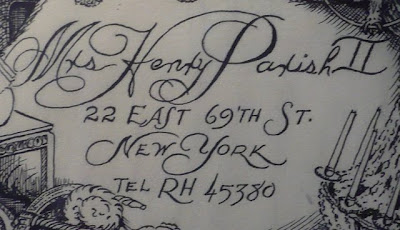 Mrs Henry Parish II
22 EAST 69TH ST.
NEW YORK
TEL RH 45380